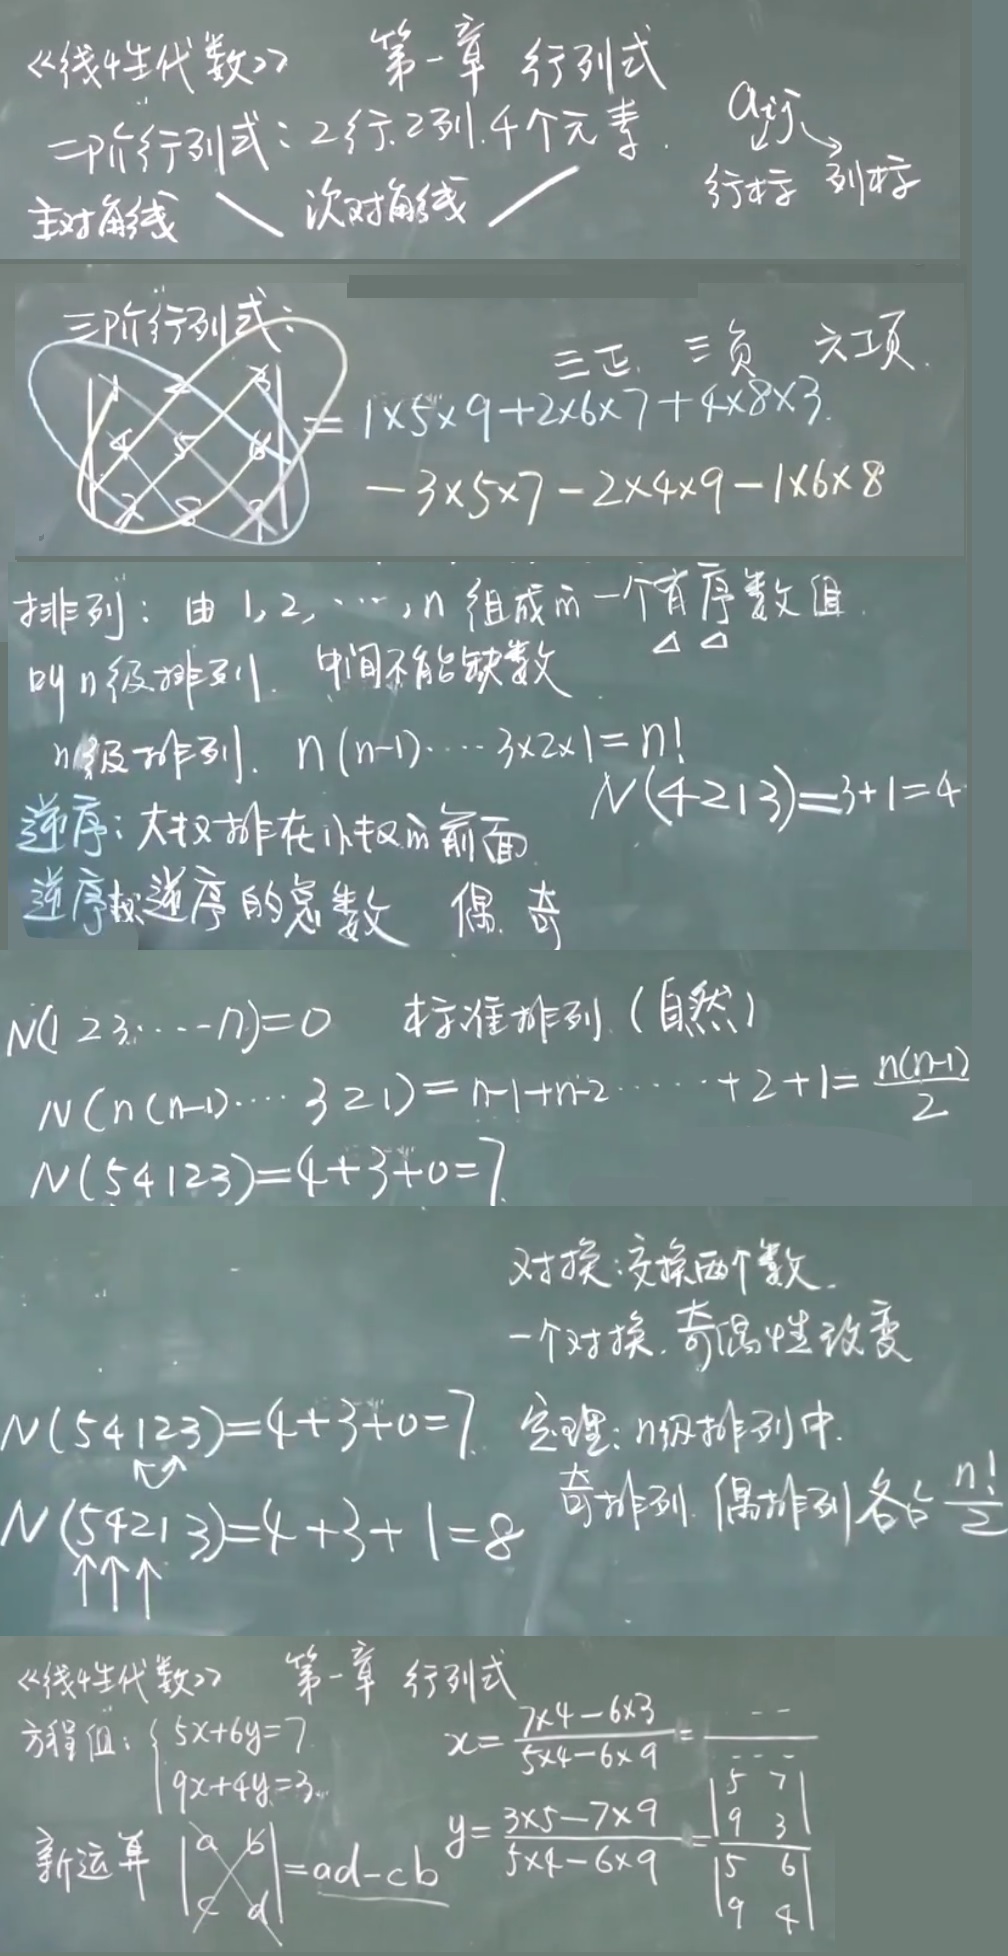 《线性代数》 第一章 行列式
二阶行列式:2行.2列.4个元素. aij
行标 列标
主对角线 ＼ 次对角线 ／
三阶行列式:
三正 三负 六项.
|1 2 3|
|4 5 6| = 1×5×9+2×6×7+4×8×3.
|7 8 9| -3×5×7-2×4×9-1×6×8
排列: 由 1,2,…,n 组成的一个有序数组.
叫n级排列. 中间不能缺数
n级排列. n(n-1)····3×2×1=n!
N(4213)=3+1=4
逆序:大数排在小数的前面
逆序数:逆序的总数 偶.奇
N(123····n)=0 标准排列(自然)
N(n(n-1)····321)=n-1+n-2······+2+1=n(n-1)/2
N(54123)=4+3+0=7.
对换:交换两个数.
一个对换.奇偶性改变
N(54123)=4+3+0=7. 定理:n级排列中.
奇排列.偶排列各占n!/2
N(54213)=4+3+1=8
↑↑↑
《线性代数》 第一章 行列式
方程组: { 5x+6y=7
9x+4y=3.
x= (7×4-6×3)/(5×4-6×9) = --/---
新运算 |a b| |c d| =ad-cb
y= (3×5-7×9)/(5×4-6×9) = |5 7| |9 3| / |5 6| |9 4|